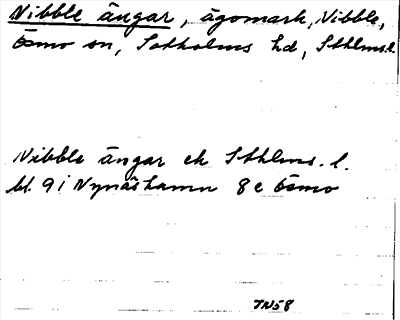 Nibble ängar, ägomark, Nibble,
Ösmo sn, Sotholms hd, Sthlms.l.
Nibble ängar ek Sthlms. l.
bl. 9 i Nynäshamn 8e Ösmo
TN58